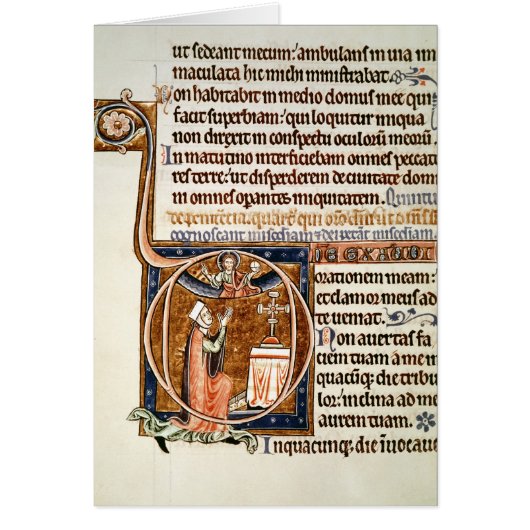 ut sedeant mecum: ambulans in uia im
maculata hic michi ministrabat.
Non habitabit in medio domus mee qui
facit superbiam: qui loquitur iniqua
non direxit in conspectu oculorum meorū.
In matutino interficiebam omnes peccato
res terre: ut disperderem de ciuitate dom
ni omnes operantes iniquitatem. Quintu
de penitencia. qui
cognoscant
NE EXAUDI
orationem meam:
et clamor meus ad
te ueniat.
Non auertas fa
ciem tuam a me in
quacūq; die tribu
lor: inclina ad me
aurem tuam.
In quacunq; die inuocaue